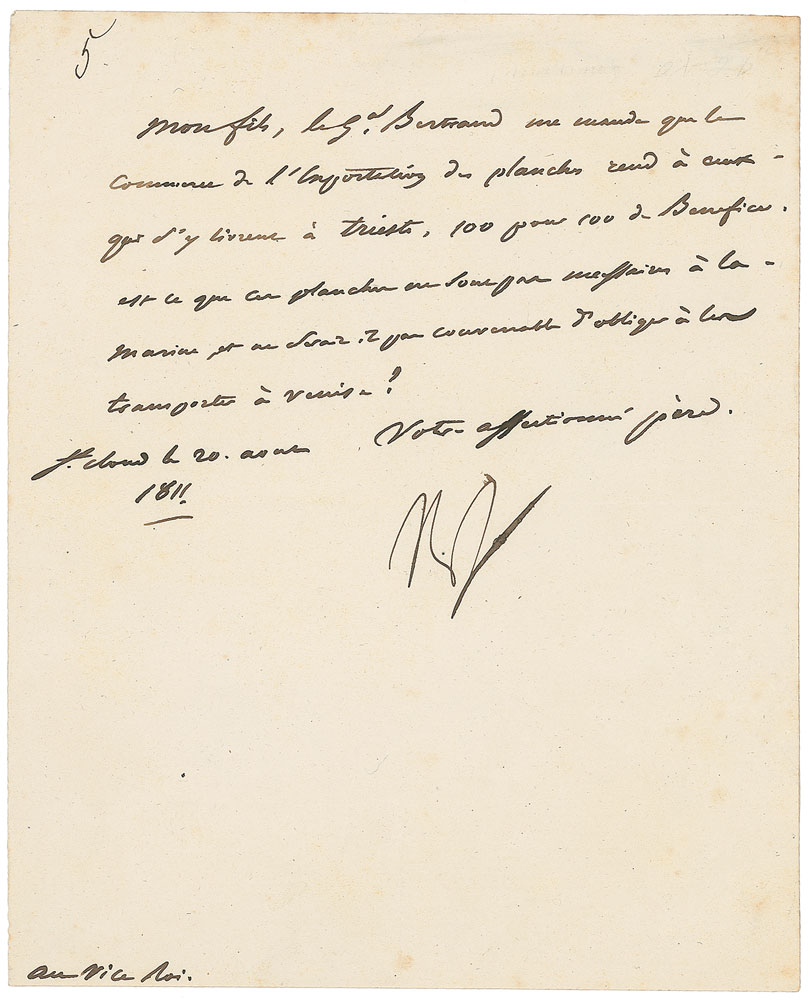 5.
Mon fils, le Gal. Bertrand me mande que le
Commerce de l'Exportation des planches rend à ceux -
qui s'y livrent à trieste, 100 pour 100 de Benefice.
est ce que ces planches ne sont pas necessaires à la -
Marine, et ne serait-il pas convenable d'obliger à les
transporter à Venise?
Votre affectionné père.
St. Cloud le 20. aout
1811.
Au Vice Roi.